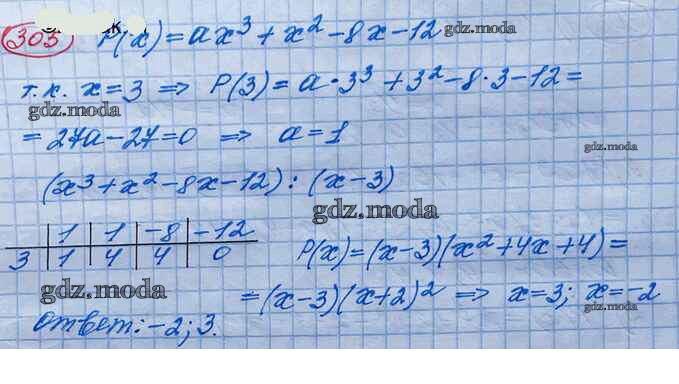 303 P(x)=ax³+x²-8x-12 gdz.moda
т.к. x=3 ⇒ P(3)=a·3³+3²-8·3-12=
gdz.moda gdz.moda
=27a-27=0 ⇒ a=1
gdz.moda
(x³+x²-8x-12):(x-3)
gdz.moda
1 | 1 | -8 | -12
3 | 1 | 4 | 4 | 0
P(x)=(x-3)(x²+4x+4)=
gdz.moda
=(x-3)(x+2)² ⇒ x=3; x=-2
gdz.moda
ответ: -2; 3.